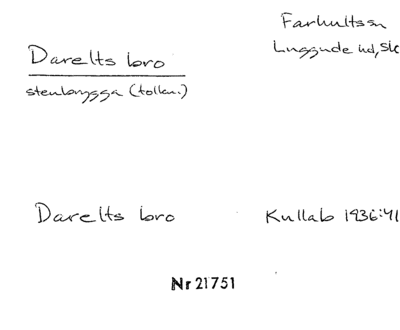 Farhults sn
Luggude hd, Sk
Darelts bro
stenbrygga (tolkn.)
Darelts bro
Kullab 1936:41
Nr 21751